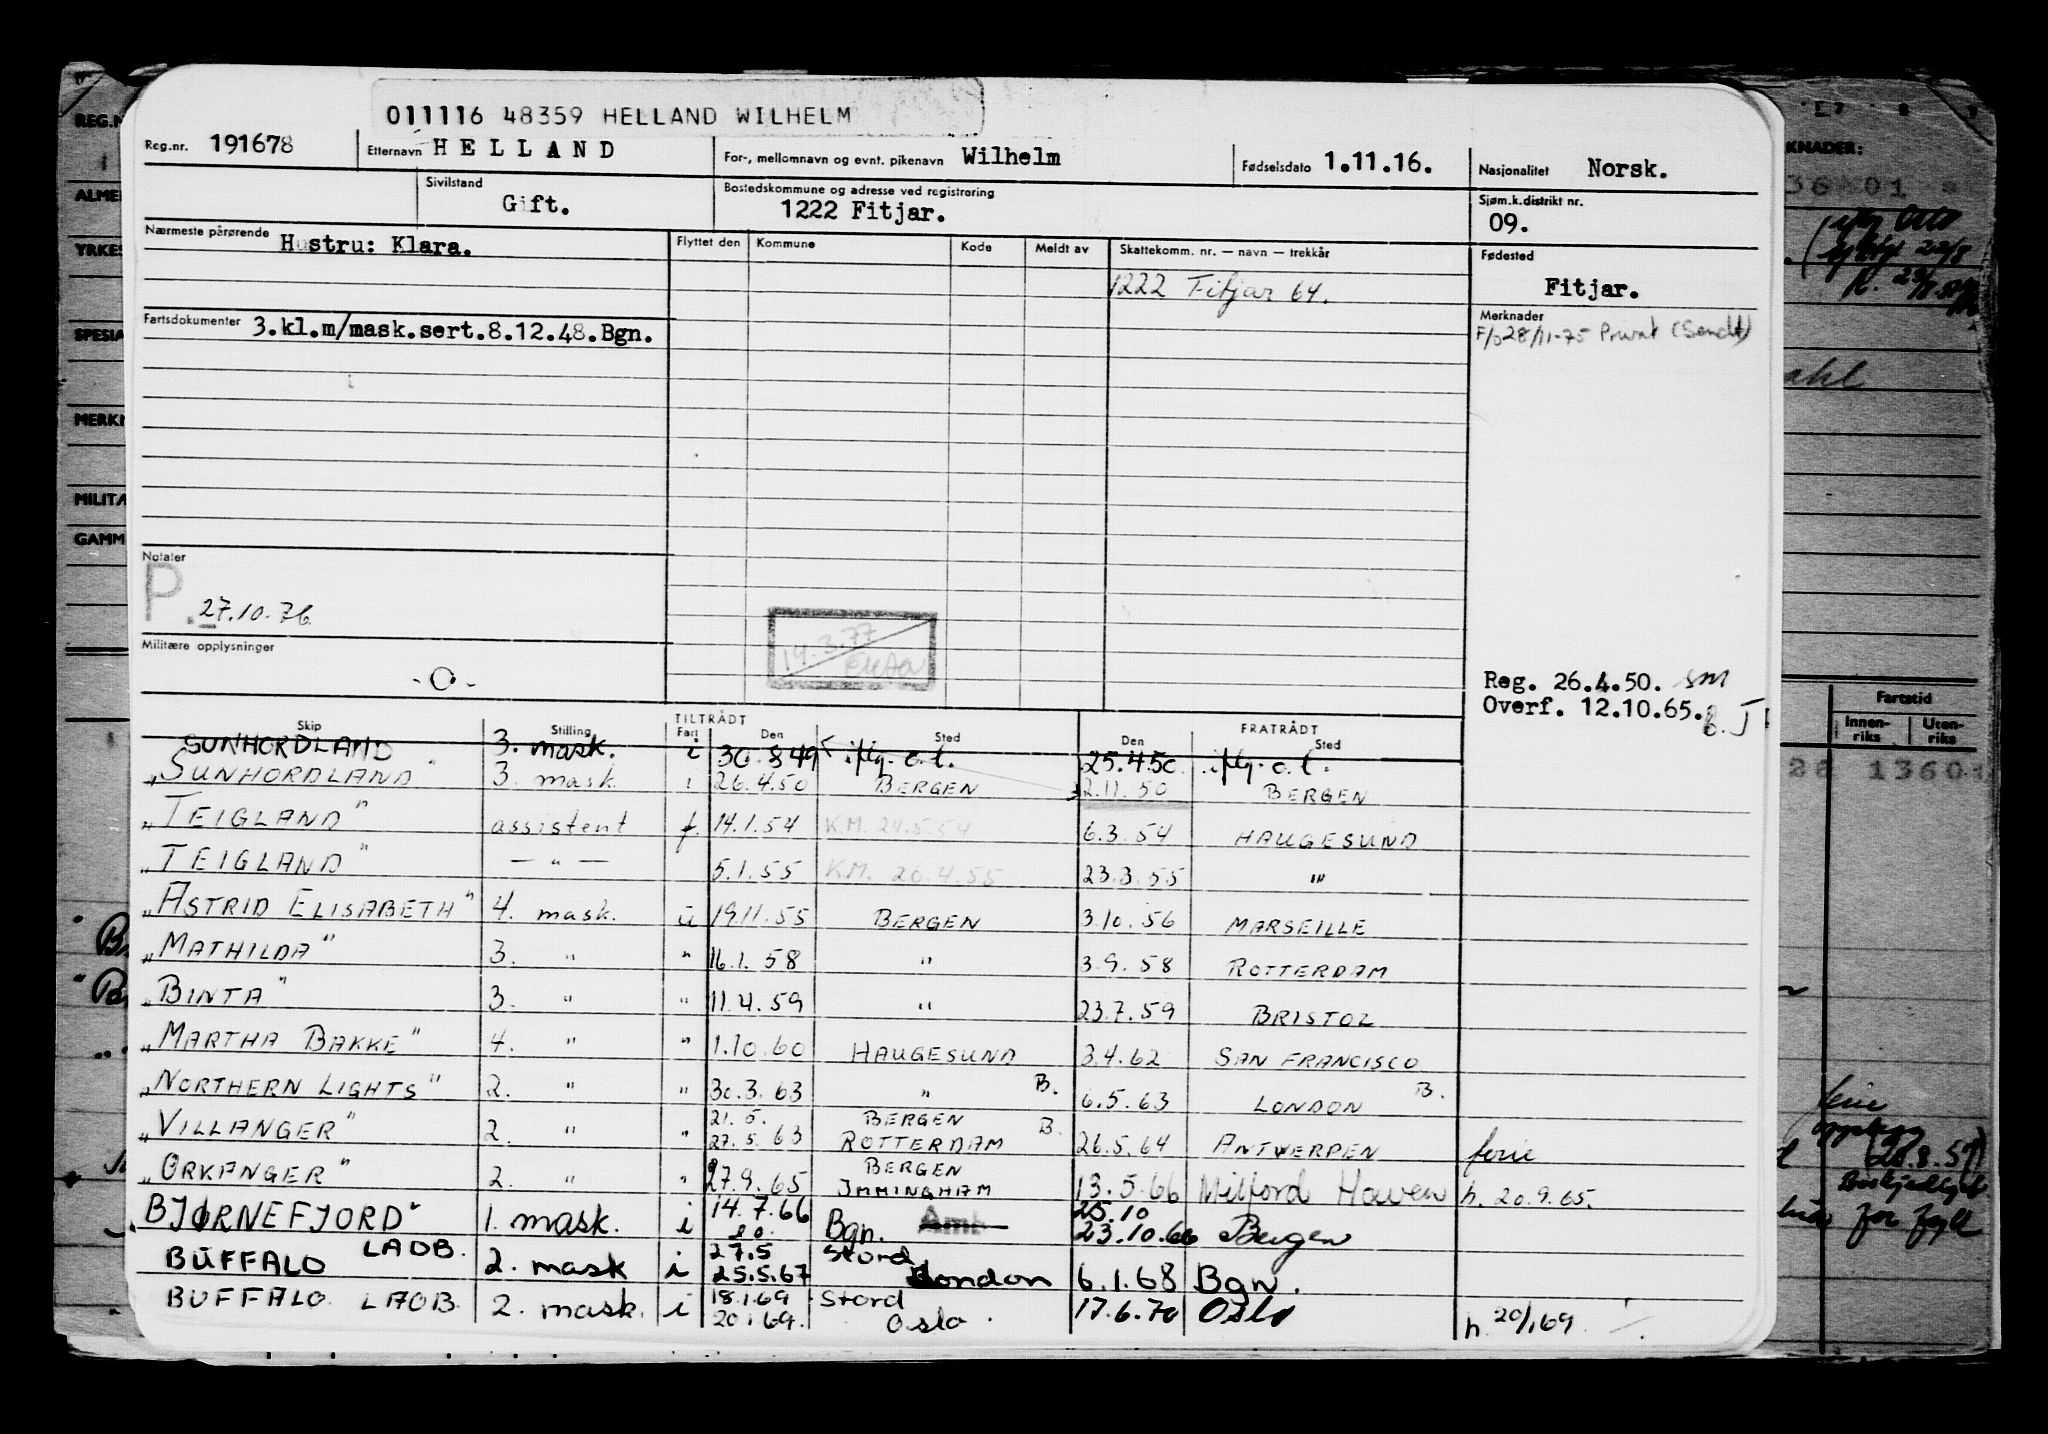 011116 48359 HELLAND WILHELM
Reg.nr. 191678 Etternavn HELLAND For-, mellomnavn og evnt. pikenavn Wilhelm Fødselsdato 1.11.16. Nasjonalitet Norsk.
Sivilstand Gift. Bostedskommune og adresse ved registrering 1222 Fitjar. Sjøm.k.distrikt nr. 09.
Nærmeste pårørende Hustru: Klara. Flyttet den Kommune Kode Meldt av Skattekomm. nr. — navn — trekkår Fødested
1222 Fitjar 64. Fitjar.
Fartsdokumenter 3.kl.m/mask.sert.8.12.48.Bgn. Merknader
F/o 28/11-75 Privat (Sendt)
Notater
P. 27.10.76
14.3.77
Militære opplysninger
-O-
Reg. 26.4.50. sm
Overf. 12.10.65. B.J
TILTRÅDT FRATRÅDT
Skip Stilling Fart Den Sted Den Sted
SUNHORDLAND 3. mask. i 30.8 49 iflg. o.l. 25.4.50. iflg. o.l.
„SUNHORDLAND" 3. mask. i 26.4.50 BERGEN 2.11.50 BERGEN
„TEIGLAND" assistent f. 14.1.54 K.M. 24.5.54 6.3.54 HAUGESUND
„TEIGLAND" — " — 5.1.55 K.M. 20.4.55 23.3.55 "
„ASTRID ELISABETH" 4. mask. u 19.11.55 BERGEN 3.10.56 MARSEILLE
„MATHILDA" 3. " " 16.1.58 " 3.9.58 ROTTERDAM
„BINTA" 3. " " 11.4.59 " 23.7.59 BRISTOL
„MARTHA BAKKE" 4. " " 1.10.60 HAUGESUND 3.4.62 SAN FRANCISCO
„NORTHERN LIGHTS" 2. " " 30.3.63 " B. 6.5.63 LONDON B.
21.5. BERGEN
„VILLANGER" 2. " " 27.5.63 ROTTERDAM B. 26.5.64 ANTWERPEN ferie
BERGEN
„ORKANGER" 2. " " 27.9.65 IMMINGHAM 13.5.66 Milford Haven h. 20.9.65.
14.7.66 25.10
„BJØRNEFJORD" 1. mask. i 20. Bgn. 23.10.66 Bergen
27.5 Stord
BUFFALO LADB. 2. mask i 25.5.67 London 6.1.68 Bgn.
18.1.69 Stord
BUFFALO LADB. 2. mask. i 20.1.69. Oslo 17.6.70 Oslo h. 20/1.69
REG.N
ALME
YRKES
SPESIA
MERKN
MILITÆ
GAMM
KNADER:
Fartstid
Innen-riks Uten-riks
1360.1
ferie